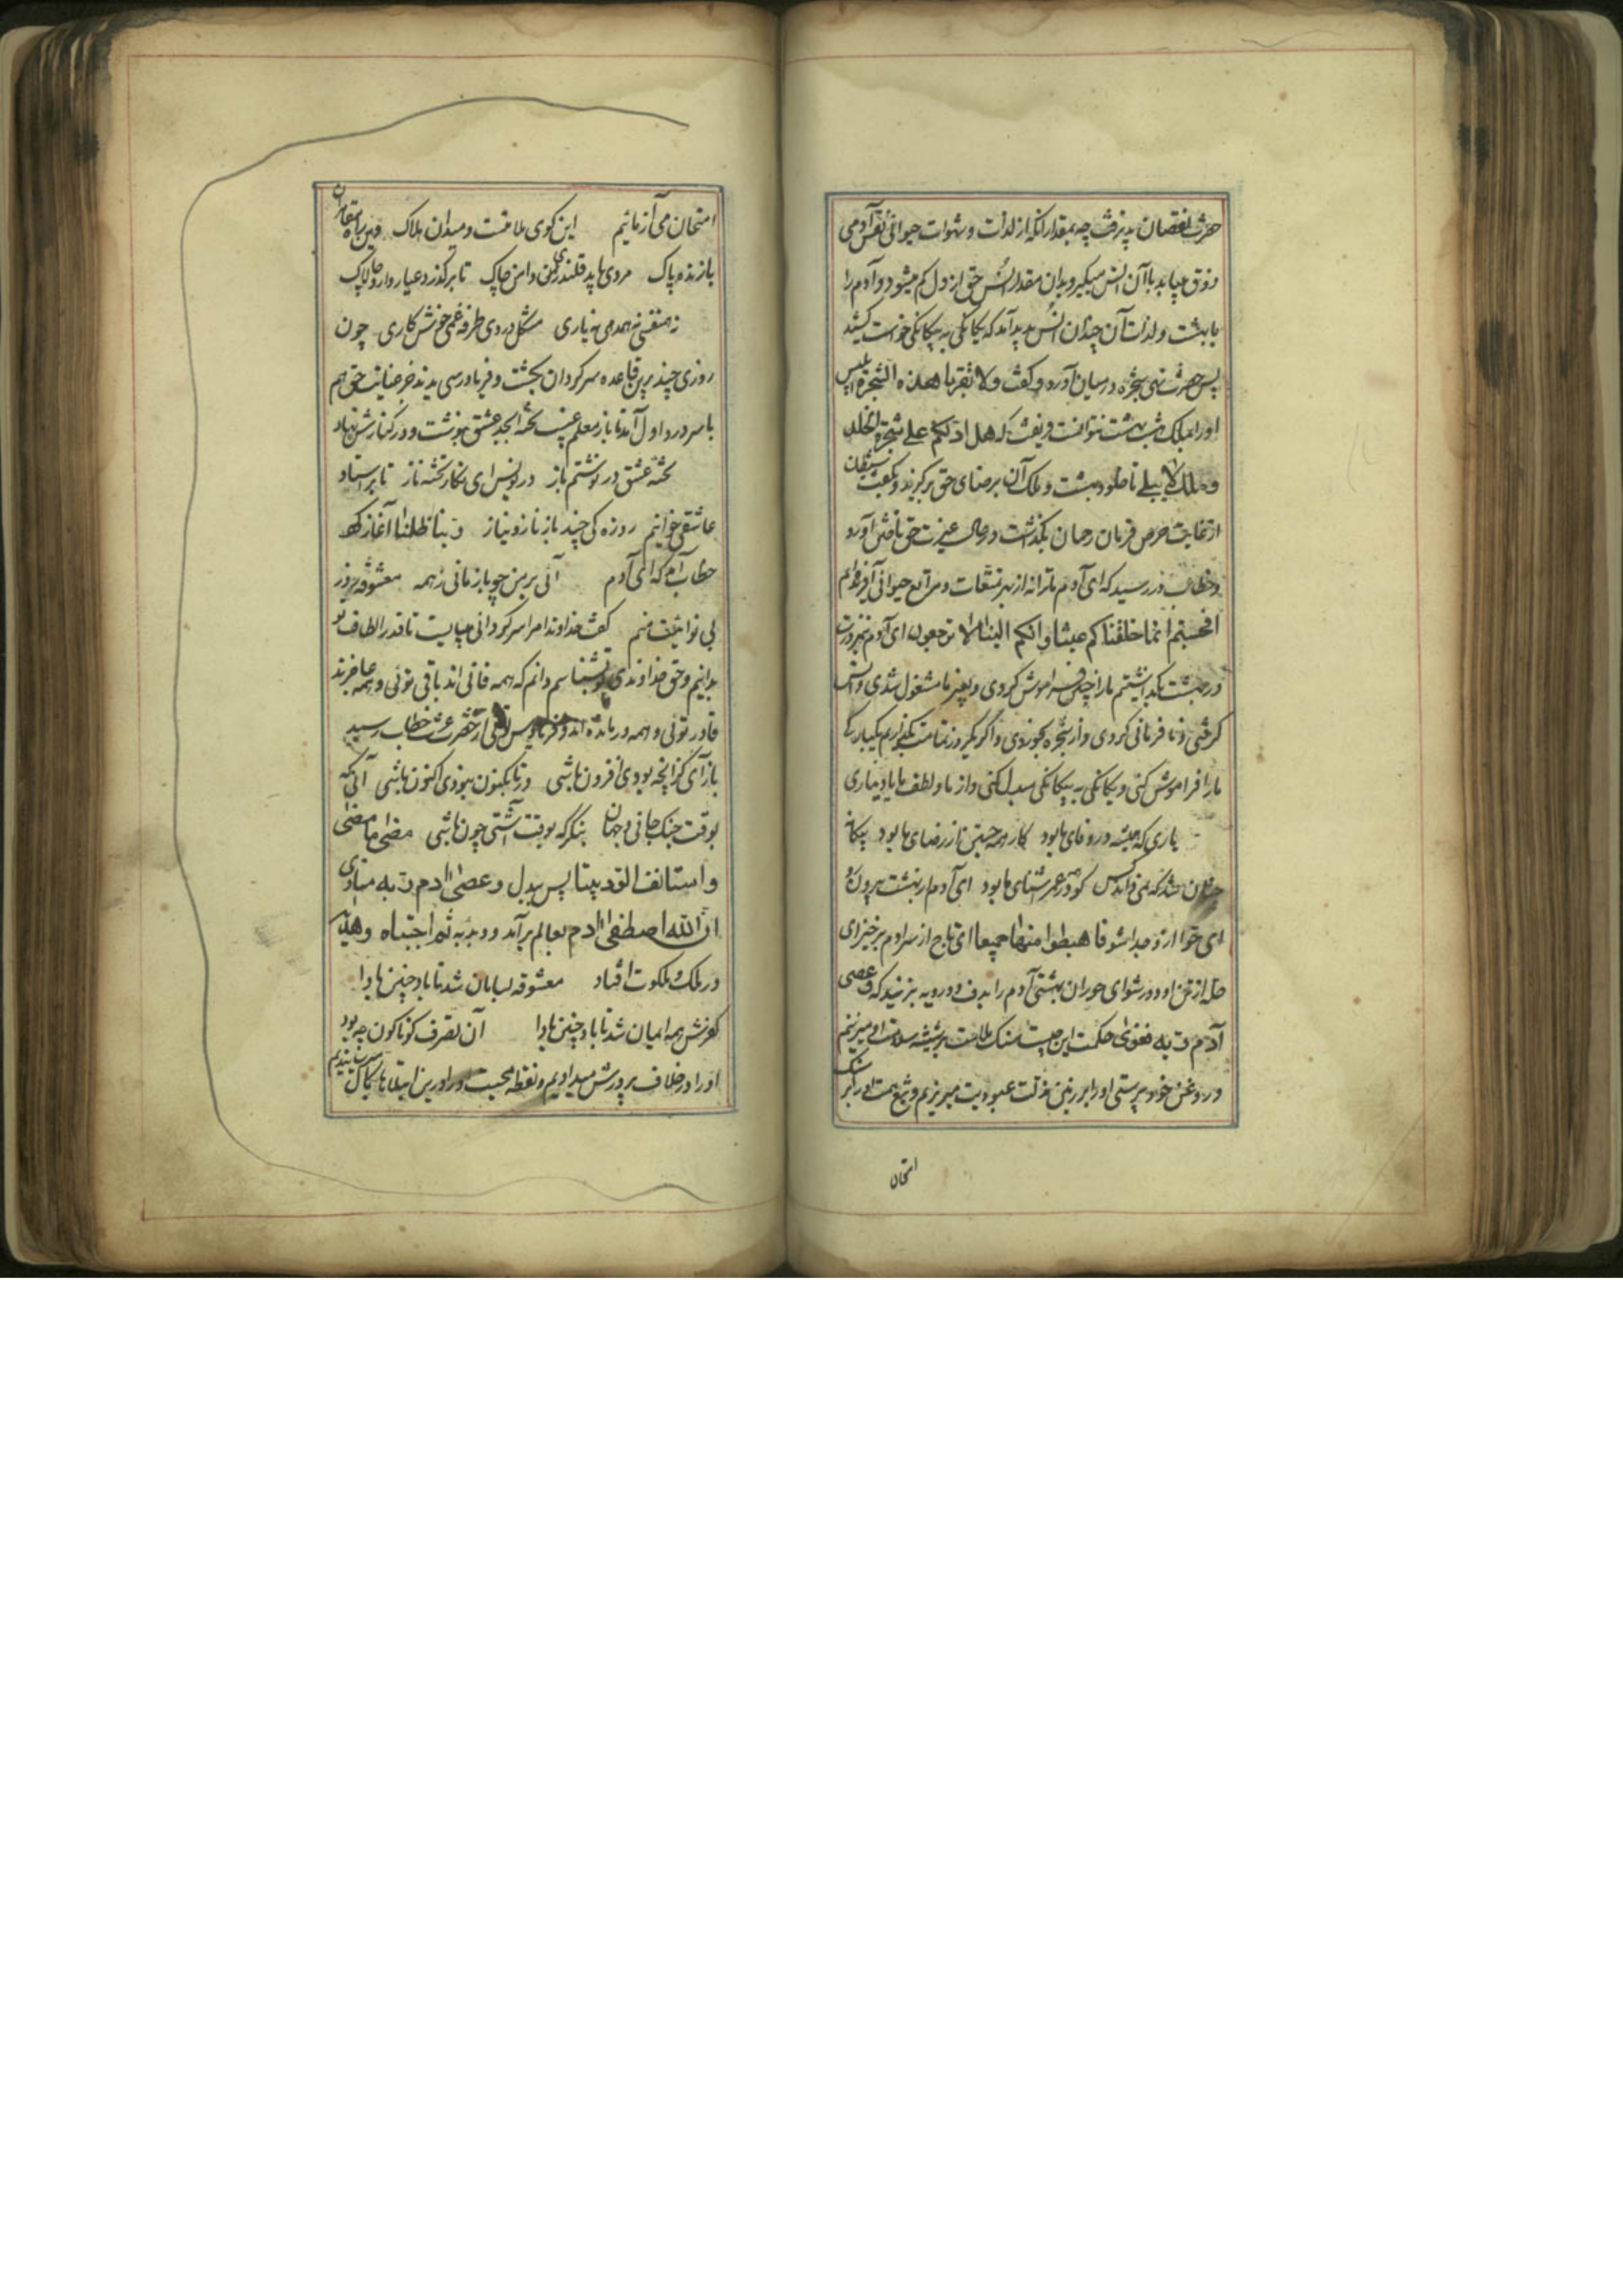 حضرت نقصان پذیرفت چه بمقدار آنکه از لذات و شهوات حیوانی نفس آدمی
ذوق مییابد با آن انس میگیرد و بدان مقدار انس حق از دل کم میشود و آدم را
با بهشت و لذات آن چندان انس پدید آمد که یکانکی به بیکانکی خواست کشید
پس حضرت نهی شجره درمیان آورد و کفت ولا تقربا هذه الشجرة ابلیس
اورا بملک بهشت نتوانست فریفت که هل ادلکم علی شجرة الخلد
وملک لا یبلی تا خلود بهشت و ملک آن بر رضای حق برکزیند
از غایت حرص فرمان رحمان بکذاشت در حال غیرت حق تاختن آورد
و خطاب در رسید که ای آدم ترا نه از بهر تمتعات و مراتع حیوانی آفریده‌ام
افحسبتم انما خلقناکم عبثا وانکم الینا لا ترجعون ای آدم
در بهشت بکذاشتیم مارا چنین فراموش کردی و بغیر ما مشغول شدی و انس
کرفتی و نافرمانی کردی و از شجره بخوردی و اکر یکروز تمامت بکذاریم یکبارکی
مارا فراموش کنی و یکانکی به بیکانکی مبدل کنی و از ما و لطف ما یاد نیاری
یاری که همیشه در وفای ما بود کار همه جستن از رضای ما بود بیکانه
چنان شد که نمی‌داند کس کو در همه عمر آشنای ما بود ای آدم از بهشت بیرون رو
ای حوا ازو جدا شو فاهبطوا منها جمیعا ای تاج از سر آدم برخیز ای
حله از تن او دور شو ای حوران بهشتی آدم را بدف دورویه بزنید که وعصی
آدم ربه فغوی حکمت این چیست سنک ملامت بر شیشه سلامت او میزنیم
و روغن خودپرستی اورا بر زمین مذلت عبودیت میریزیم و تیغ همت اورا بر سنک
امتحان
امتحان می آزمائیم این کوی ملامتست و میدان هلاک وین راه مقامران
بازنده پاک مردی باید قلندری دامن چاک تا برکذرد عیاروار و چالاک
نه همنفسی نه همدمی نه یاری مشکل دردی طرفه غمی خوش کاری چون
روزی چند برین قاعده سرکردان بکشت و فریادرسی ندید جز عنایت حق هم
با سر درد اول آمد تا باز معلم غیب تخته ابجد عشق نوشت و در کنارش نهاد
تخته عشق درنوشتم باز درنویس ای نکار تخته ناز تا بر استاد
عاشقی خوانیم روزه کی چند باز ناز و نیاز ربنا ظلمنا آغاز کرد
خطاب آمد که ای آدم آئی بر من چو بازمانی ز همه معشوقه روز
بی نوائیت منم کفت خداوندا مرا سرکردانی میبایست تا قدر الطاف تو
بدانم و حق خداوندی تو بشناسم دانم که همه فانی اند باقی توئی و همه عاجزند
قادر توئی و همه درمانده اند و فریادرس توئی از حضرت عزت خطاب رسید
باز آی کز آنچه بودی افزون باشی ور تا بکنون نبودی اکنون باشی آنی که
بوقت جنک جانی و جهان بنکر که بوقت آشتی چون باشی مضی ما مضی
واستانف الود بیننا پس بدل وعصی آدم ربه منادی
ان الله اصطفی آدم بعالم برآمد و ندبه ثم اجتباه وهدی
در ملک و ملکوت افتاد معشوقه بسامان شد تا باد چنین بادا
کفرش همه ایمان شد تا باد چنین بادا آن تصرف کوناکون چه بود
اورا در خلاف پرورش میدادیم و نقطه محبت اورا درین ابتلاها بکمال میرسانیدیم